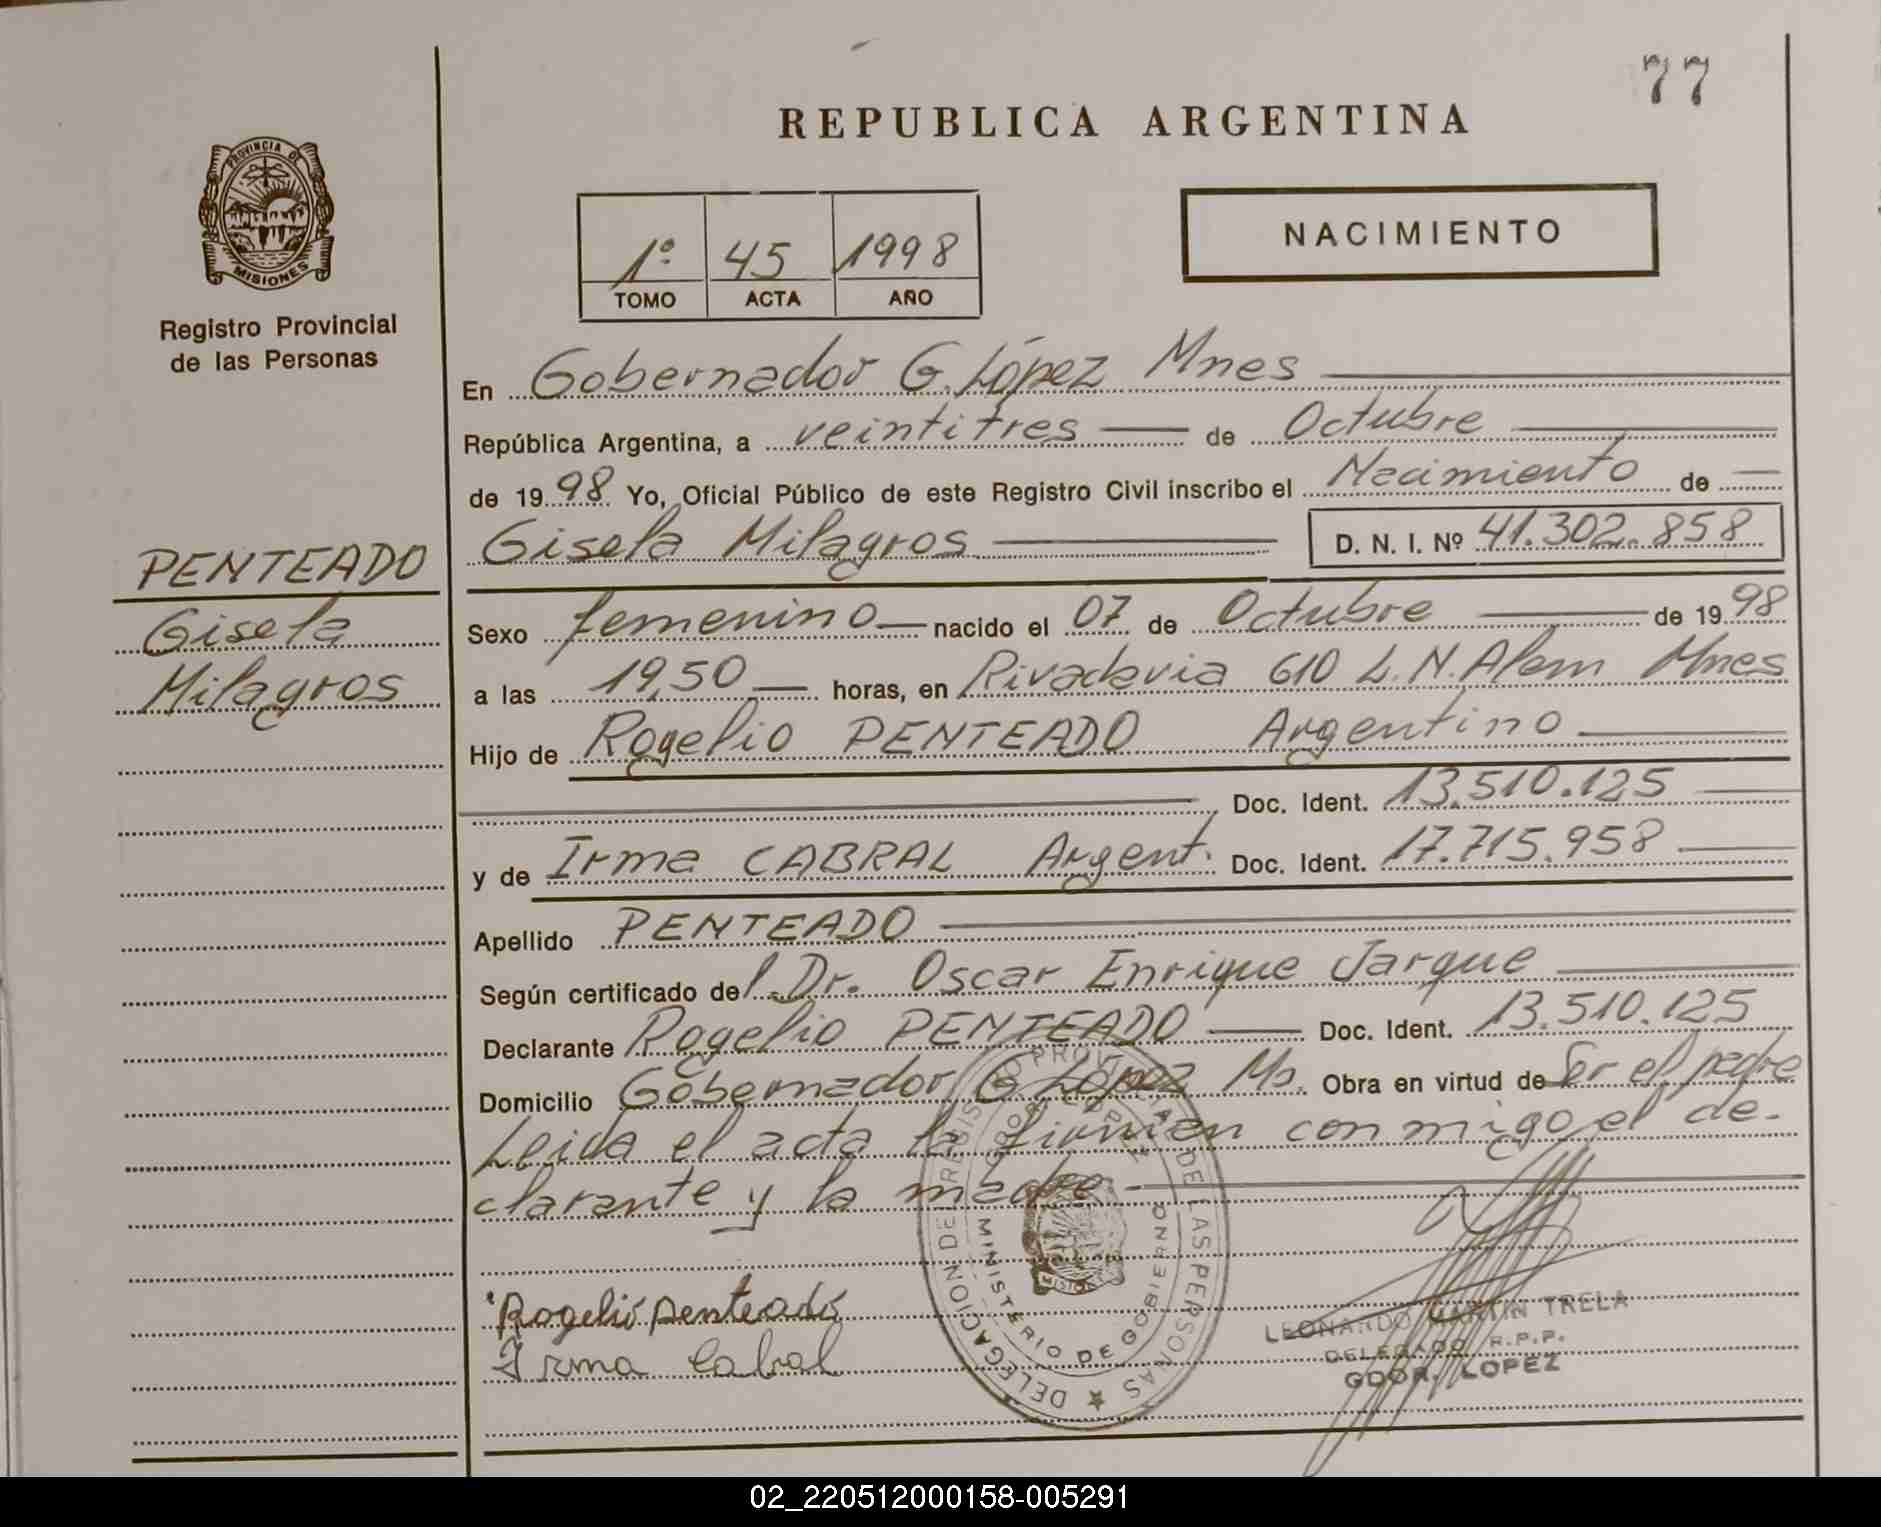 77
REPUBLICA ARGENTINA
PROVINCIA DE
MISIONES
Registro Provincial
de las Personas
1º 45 1998
TOMO ACTA AÑO
NACIMIENTO
En Gobernador G. López Mnes
República Argentina, a veintitres de Octubre
de 1998 Yo, Oficial Público de este Registro Civil inscribo el Nacimiento de
Gisela Milagros D. N. I. Nº 41.302.858
PENTEADO
Gisela
Milagros
Sexo femenino nacido el 07 de Octubre de 1998
a las 19,50 horas, en Rivadavia 610 L.N.Alem Mnes
Hijo de Rogelio PENTEADO Argentino
Doc. Ident. 13.510.125
y de Irma CABRAL Argent. Doc. Ident. 17.715.958
Apellido PENTEADO
Según certificado del Dr. Oscar Enrique Jarque
Declarante Rogelio PENTEADO Doc. Ident. 13.510.125
Domicilio Gobernador G López Ms. Obra en virtud de Ser el padre
Leida el acta la firman conmigo el de-
clarante y la madre
Rogelio penteado
Irma Cabral
DELEGACION DEL REGISTRO PROVINCIAL DE LAS PERSONAS
MINISTERIO DE GOBIERNO
MISIONES
LEONARDO MARTIN TRELA
DELEGADO R.P.P.
GDOR. LOPEZ
02_220512000158-005291